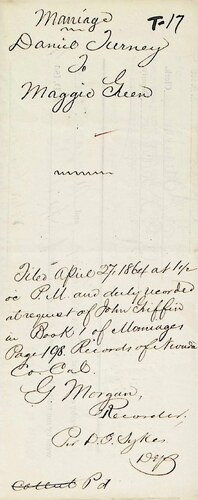 Marriage
T-17
Daniel Tierney
To
Maggie Green
Filed April 27, 1864 at 1½
oc P.M. and duly recorded
at request of John Griffin
in Book 1 of Marriages
Page 198. Records of Nevada
Co. Cal.
G Morgan,
Recorder.
Per D. P. Sykes
Dep
Collect Pd